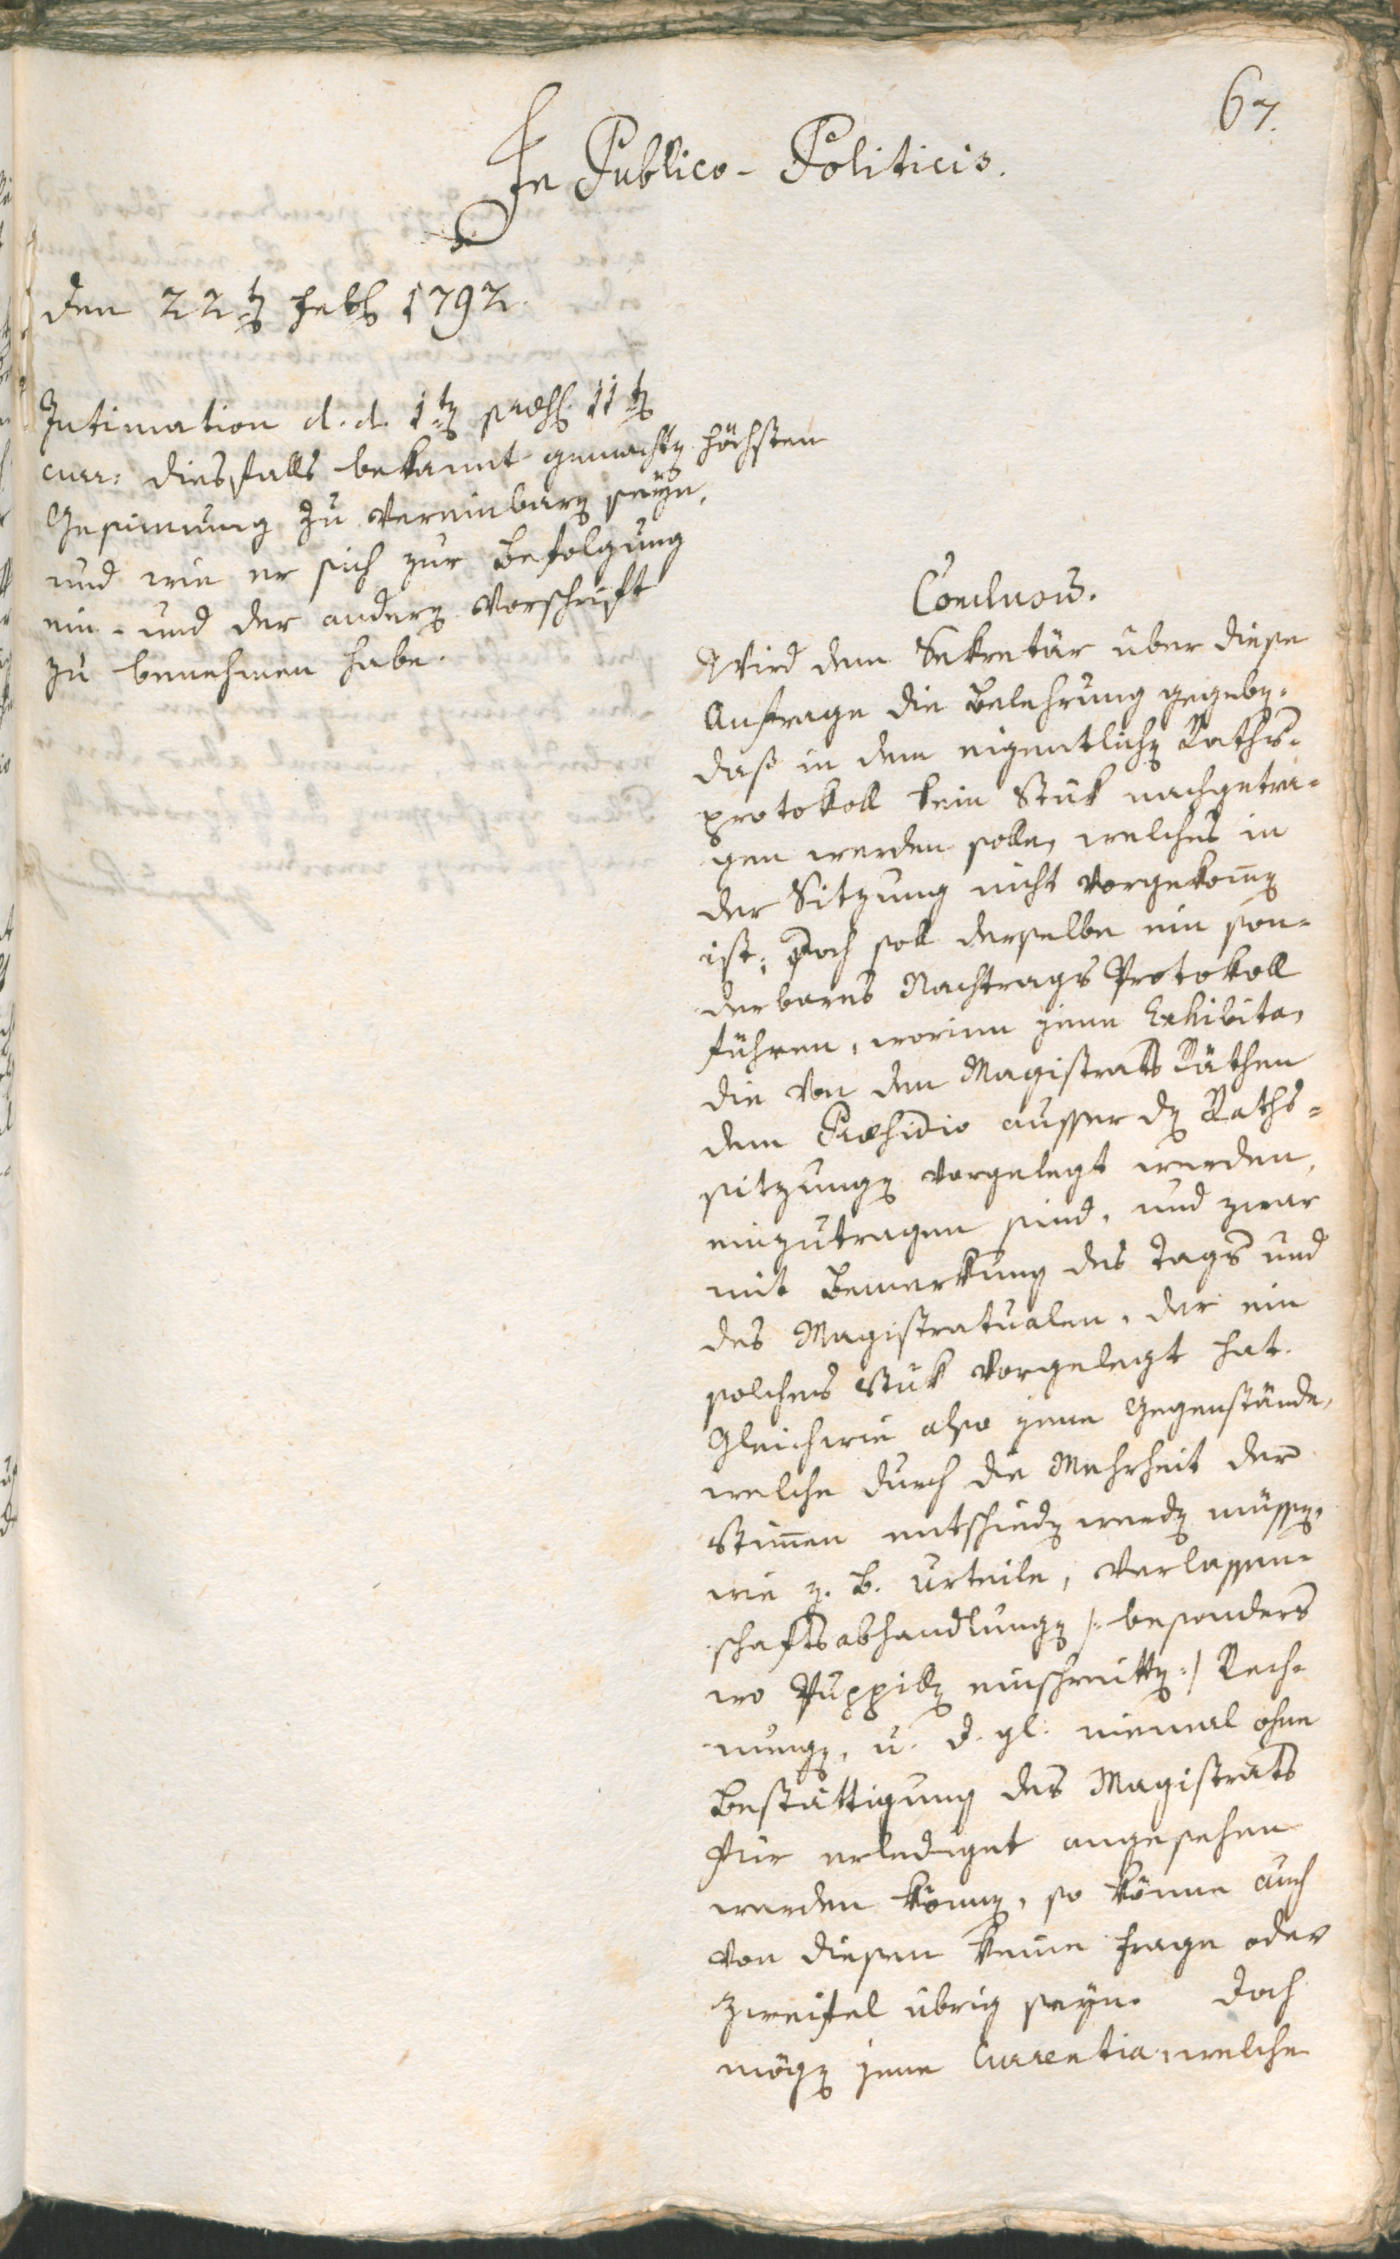 67.
In Publico-Politicis.
den 22ten Febr 1792.
Intimation d. d. 1ten præs. 11ten
curr: diesfalls bekannt gemachten höchsten
Gesinnung zu vereinbaren seyn,
und wie er sich zur Befolgung
ein- und der anderen Vorschrift
zu benehmen habe.
Conclusum.
Wird dem Sekretär über diese
Anfrage die Belehrung gegeben,
daß in dem eigentlichen Raths-
protokoll kein Stük nachgetra-
gen werden solle, welches in
der Sitzung nicht vorgekommen
ist; Doch soll derselbe ein son-
derbares Nachtrags Protokoll
führen, worinn jene Exhibita,
die von den Magistrats Räthen
dem Præsidio ausser den Raths-
sitzungen vorgelegt werden,
einzutragen sind, und zwar
mit Bemerkung des Tags und
des Magistratualen, der ein
solches Stük vorgelegt hat.
Gleichwie also jene Gegenstände,
welche durch die Mehrheit der
Stimmen entschieden werden müssen,
wie z. B. Urteile, Verlassen-
schaftsabhandlungen /: besonders
wo Puppillen einschreitten :/ Rech-
nungen, u. d. gl. niemal ohne
Bestättigung des Magistrats
für erlediget angesehen
werden können, so könne auch
von diesen keine Frage oder
Zweifel übrig seyn. Doch
mögen jene Currentia, welche